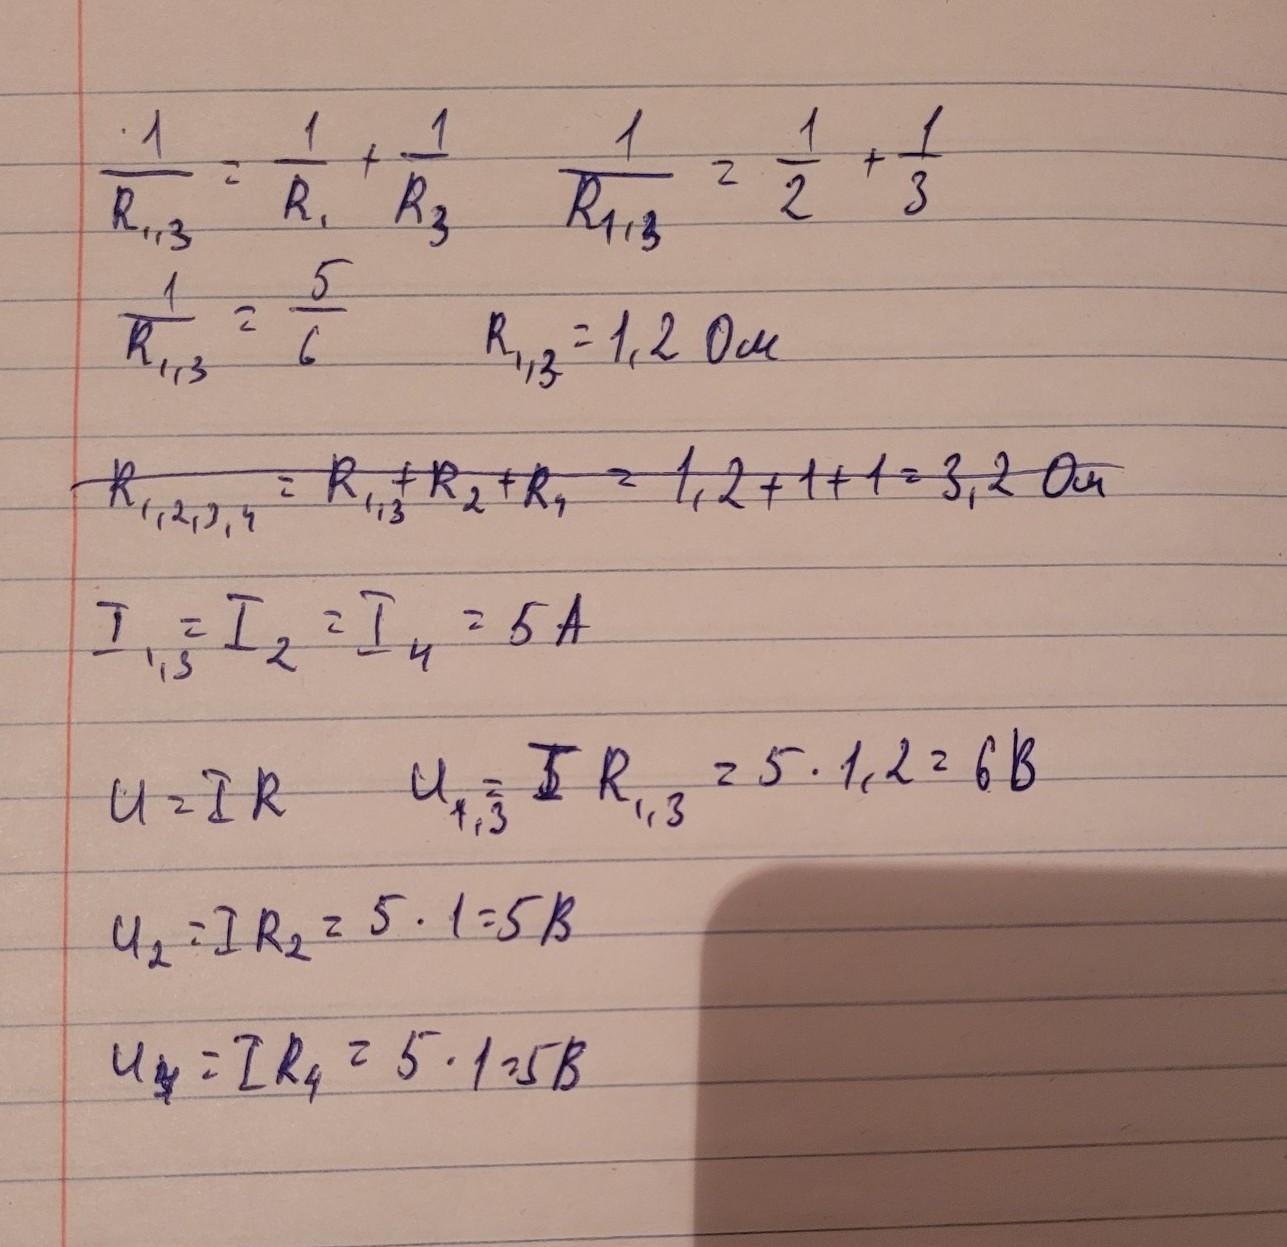 1/R₁,₃ = 1/R₁ + 1/R₃    1/R₁,₃ = 1/2 + 1/3
1/R₁,₃ = 5/6    R₁,₃ = 1,2 Ом
R₁,₂,₃,₄ = R₁,₃ + R₂ + R₄ = 1,2 + 1 + 1 = 3,2 Ом
I₁,₃ = I₂ = I₄ = 5 А
U = IR    U₁,₃ = I R₁,₃ = 5 · 1,2 = 6 В
U₂ = I R₂ = 5 · 1 = 5 В
U₄ = I R₄ = 5 · 1 = 5 В